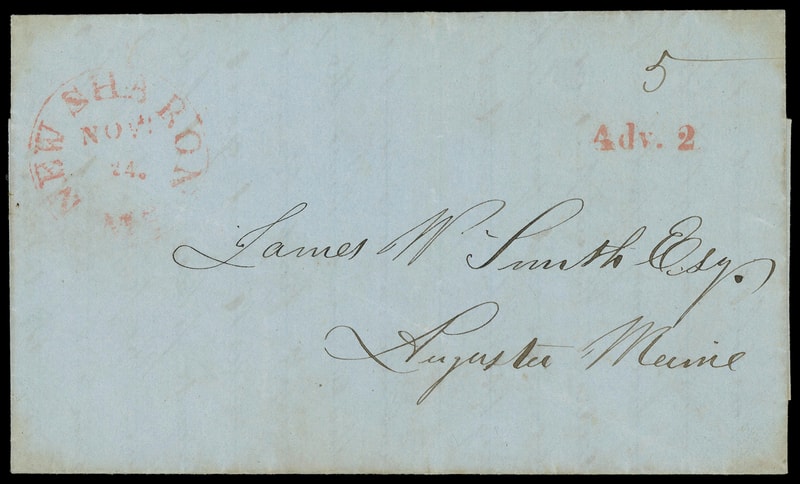 NEW SHARON
NOV.
24.
ME
5
Adv. 2
James W Smith Esq.
Augusta Maine